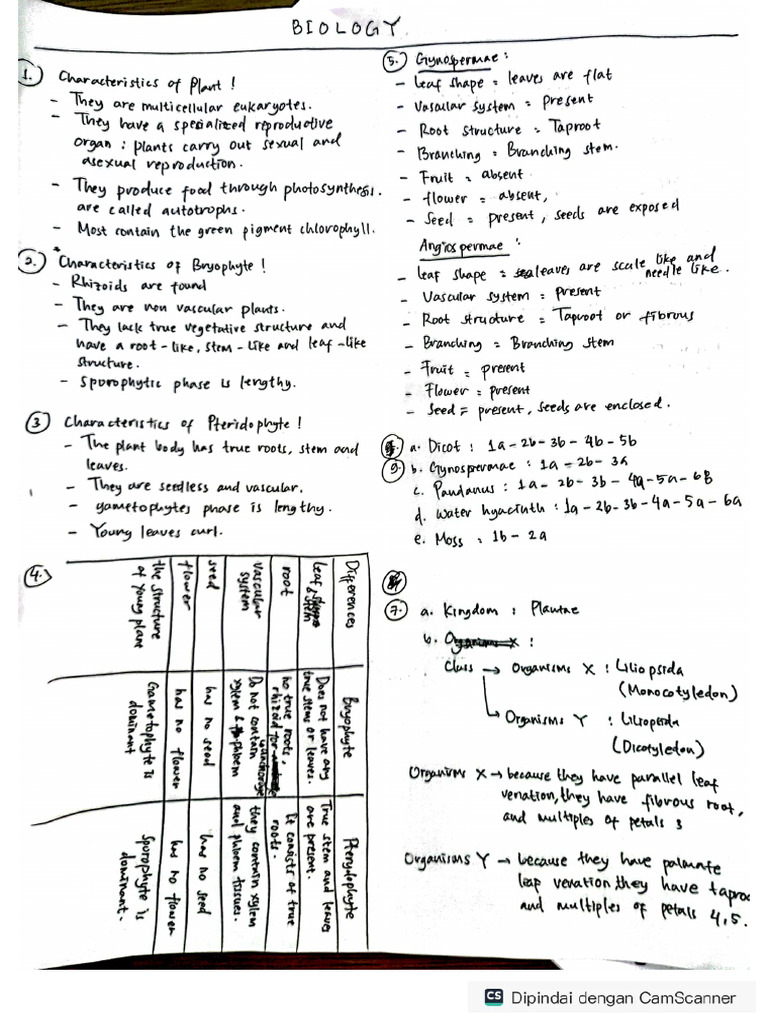 BIOLOGY
1. Characteristics of Plant !
- They are multicellular eukaryotes.
- They have a specialized reproductive
organ : plants carry out sexual and
asexual reproduction.
- They produce food through photosynthesis.
are called autotrophs.
- Most contain the green pigment chlorophyll.
2. Characteristics of Bryophyte !
- Rhizoids are found
- They are non vascular plants.
- They lack true vegetative structure and
have a root-like, stem-like and leaf-like
structure.
- Sporophytic phase is lengthy.
3 Characteristics of Pteridophyte !
- The plant body has true roots, stem and
leaves.
- They are seedless and vascular.
- gametophytes phase is lengthy.
- Young leaves curl.
4.
Differences
Bryophyte
Pterydophyte
Leaf & stem
Does not have any
true stems or leaves.
True stem and leaves
are present.
root
no true roots,
rhizoid for anchorage
It consists of true
roots.
vascular
system
Do not contain
xylem & phloem
they contain xylem
and phloem tissues.
seed
has no seed
has no seed
flower
has no flower
has no flower
the structure
of young plant
Gametophyte is
dominant
Sporophyte is
dominant.
5. Gynospermae :
- Leaf shape = leaves are flat
- Vascular system = present
- Root structure = Taproot
- Branching = Branching stem.
- Fruit = absent
- flower = absent,
- Seed = present, seeds are exposed
Angiospermae :
- Leaf shape = leaves are scale like and
needle like.
- Vascular system = present
- Root structure = Taproot or fibrous
- Branching = Branching stem
- Fruit = present
- Flower = present
- Seed = present, seeds are enclosed.
a. Dicot : 1a - 2b - 3b - 4b - 5b
9. b. Gynospermae : 1a - 2b - 3a
c. Pandanus : 1a - 2b - 3b - 4a - 5a - 6B
d. Water hyacinth : 1a - 2b - 3b - 4a - 5a - 6a
e. Moss : 1b - 2a
7. a. Kingdom : Plantae
b. :
Class → Organisms X : Liliopsida
(Monocotyledon)
→ Organisms Y :
(Dicotyledon)
Organisms X → because they have parallel leaf
venation, they have fibrous root,
and multiples of petals 3
Organisms Y → because they have palmate
leaf venation they have tapro
and multiples of petals 4,5.
CS Dipindai dengan CamScanner